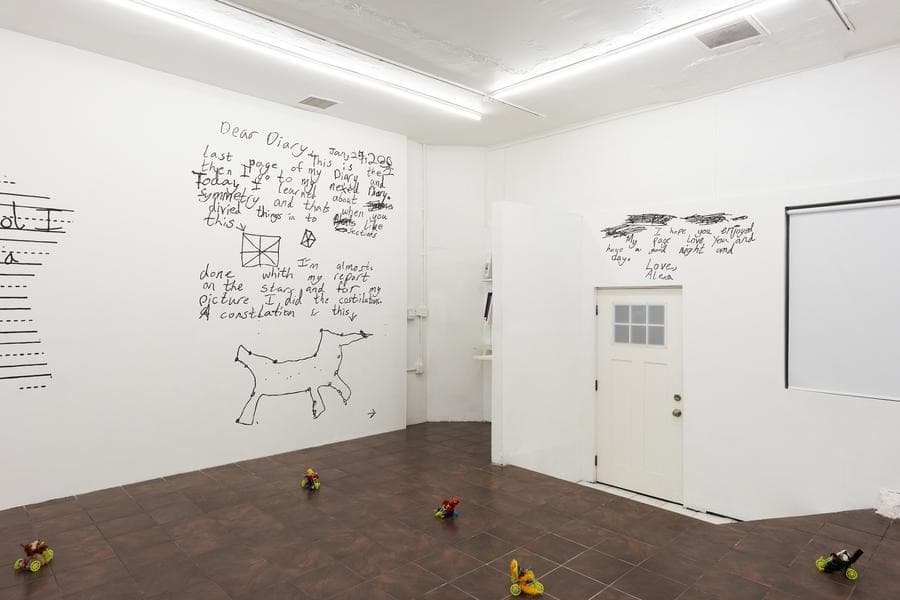 ol I
a
Dear Diary,
Jan,29th,200
last page of my Diary this is the
then I go to my nexed Diary. and
Today I learnt about
symmetry and thats when you
divied things in to like
this sections
I'm almost
done whith my report
on the stars and for my
picture I did the costilation.
A constlation is this
I hope you enjoyed
My page Love You and
have a good night and
day.
Love,
Alexa